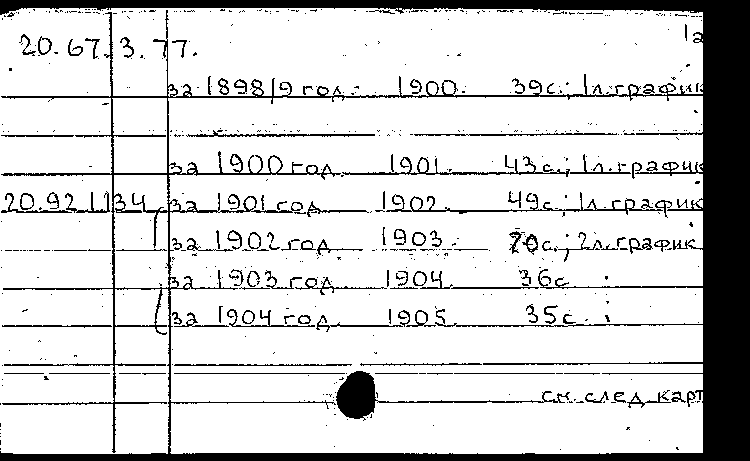 1а
20.67.3.77.
за 1898/9 год. 1900. 39с.; 1л.график
за 1900 год. 1901. 43с.; 1л.график
20.92.1.134 за 1901 год 1902. 49с.; 1л.график
за 1902 год 1903. 70с.; 2л.график
за 1903 год. 1904. 36с.
за 1904 год. 1905. 35с.
см. след. карт